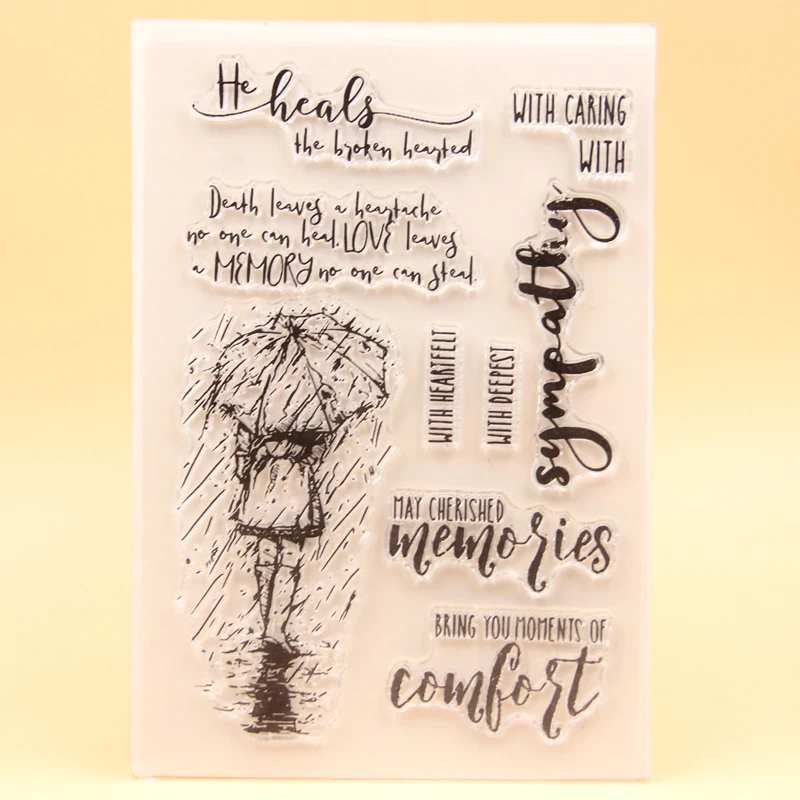 He heals
the broken hearted
Death leaves a heartache
no one can heal. LOVE leaves
a MEMORY no one can steal.
WITH CARING
WITH
sympathy
WITH HEARTFELT
WITH DEEPEST
MAY CHERISHED
memories
BRING YOU MOMENTS OF
comfort